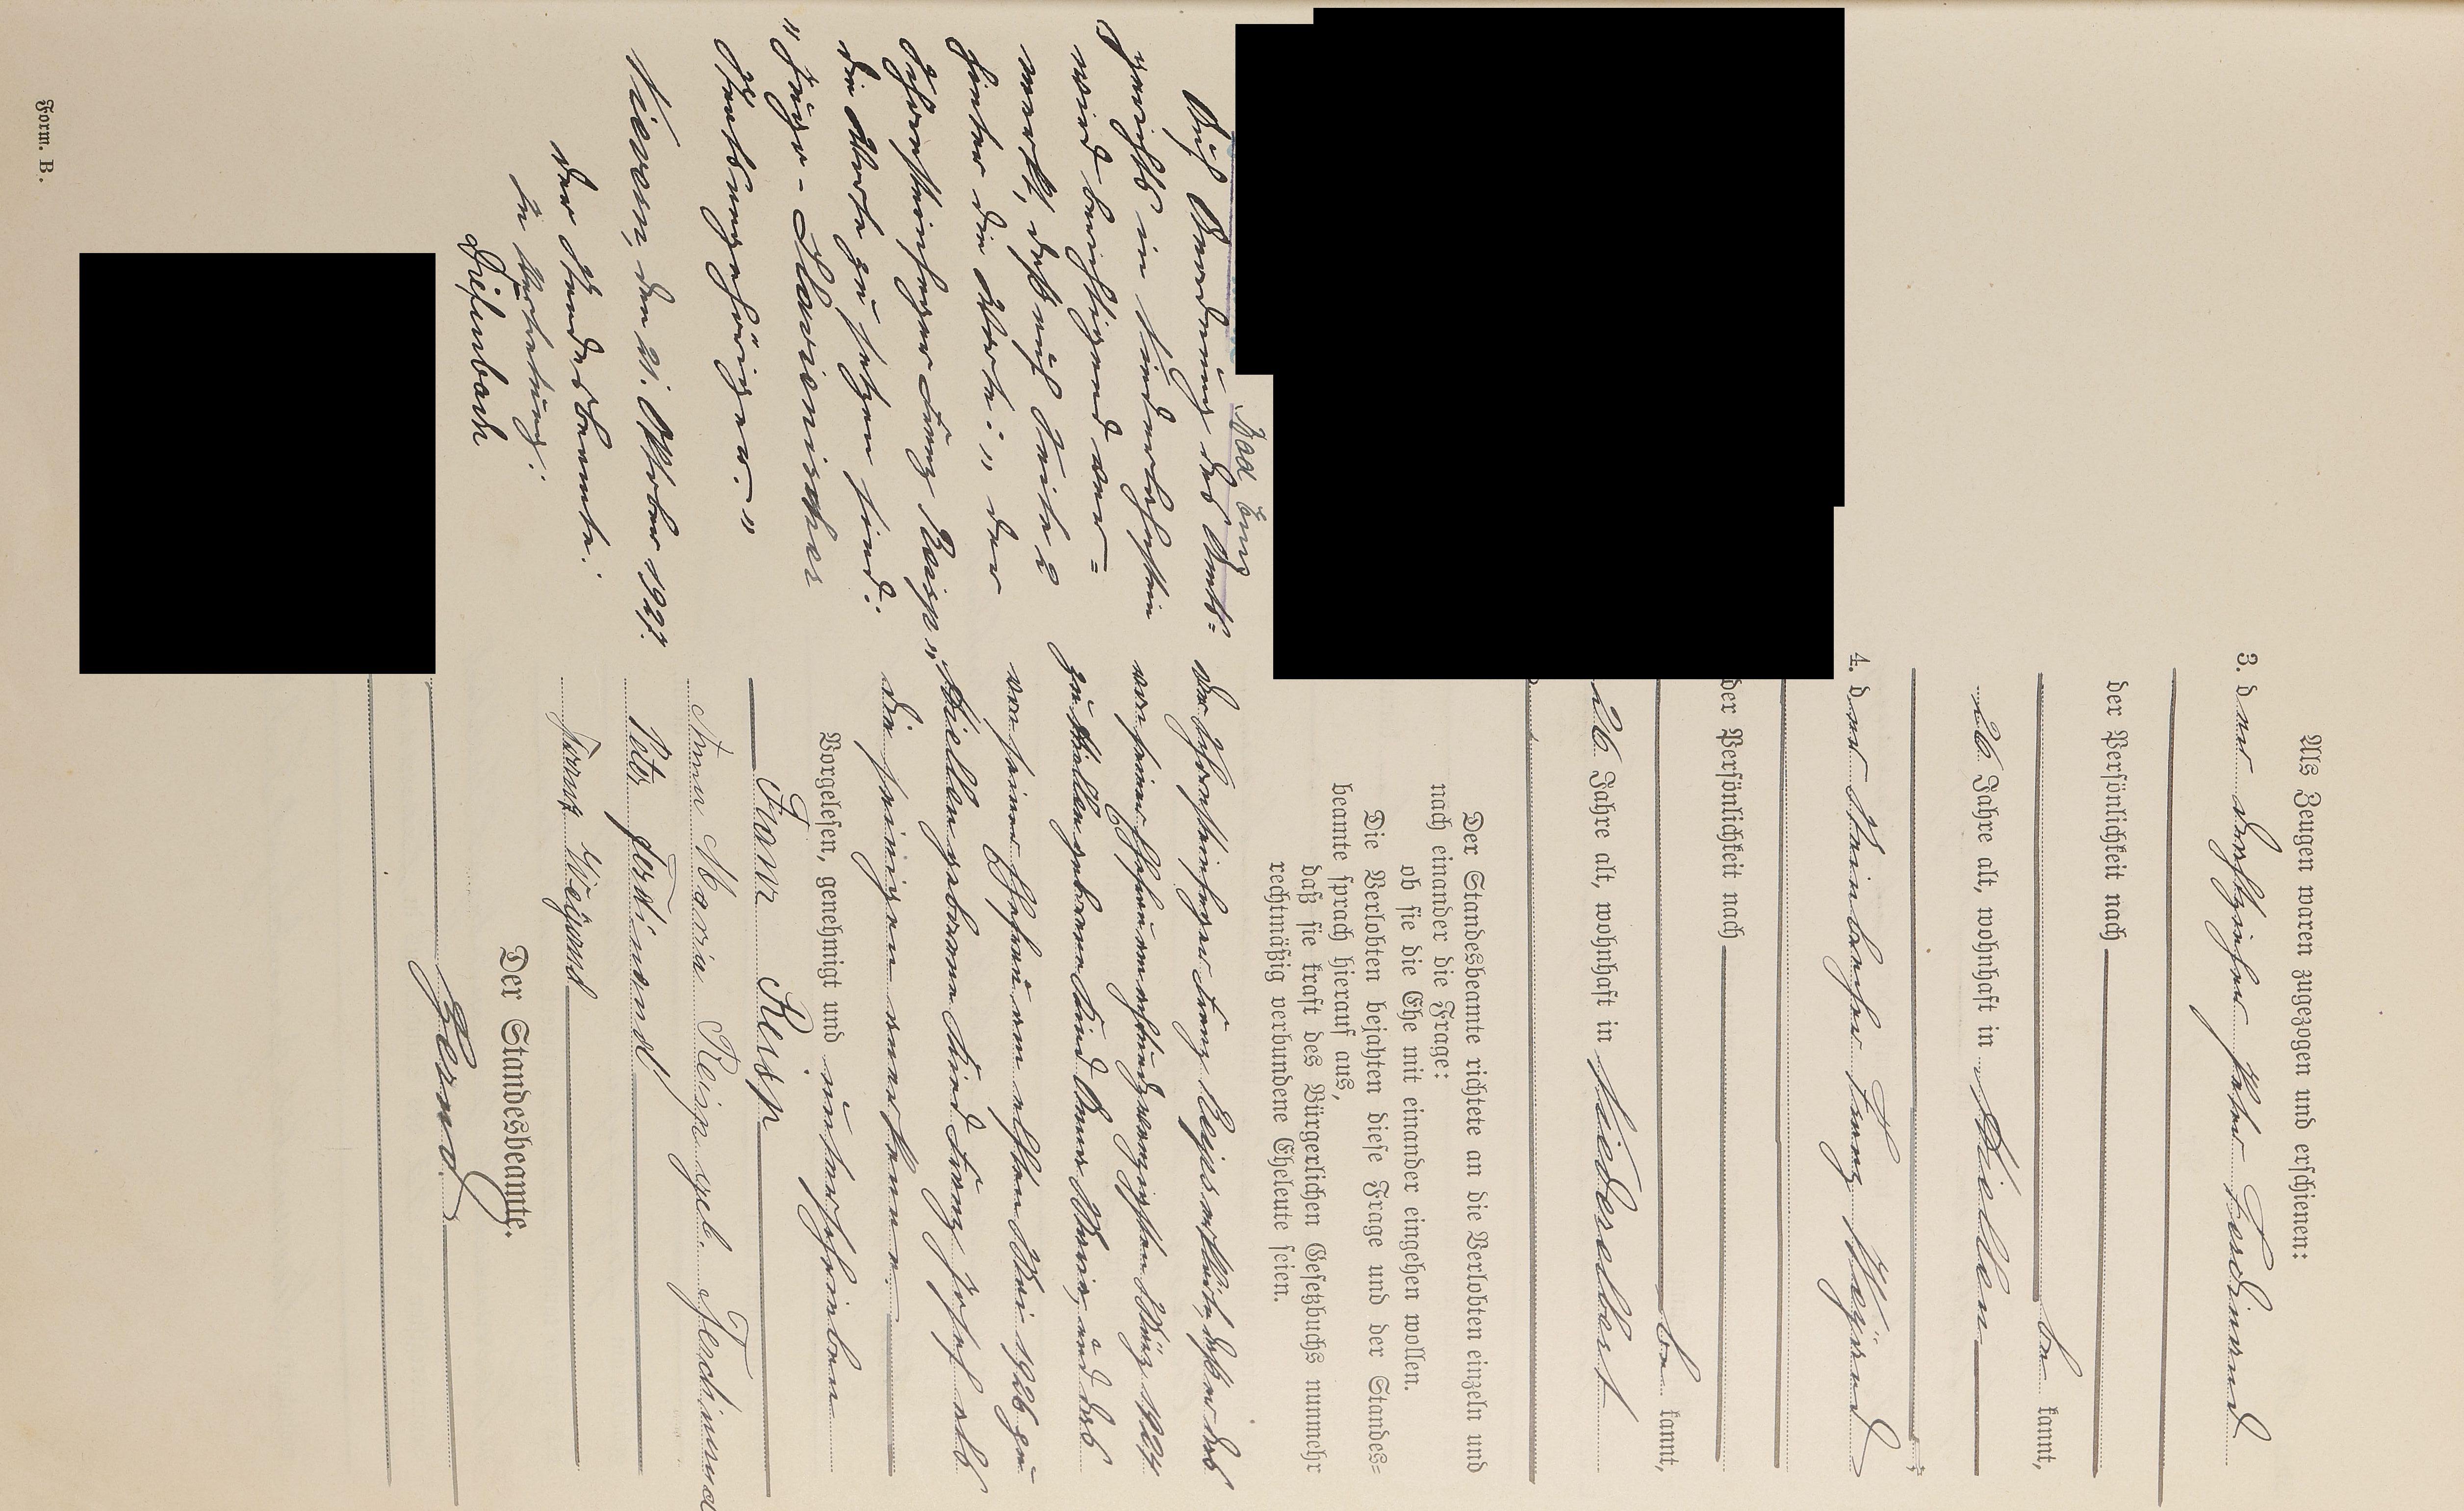 Als Zeugen waren zugezogen und erschienen:
3. der Peter Ferdinand
der Persönlichkeit nach
be kannt,
26 Jahre alt, wohnhaft in Nievern
4. der Steinhauer Franz Weyand
;
der Persönlichkeit nach
be kannt,
26 Jahre alt, wohnhaft in Niederelbert
Der Standesbeamte richtete an die Verlobten einzeln und
nach einander die Frage:
ob sie die Ehe mit einander eingehen wollen.
Die Verlobten bejahten diese Frage und der Standes-
beamte sprach hierauf aus,
daß sie kraft des Bürgerlichen Gesetzbuchs nunmehr
rechtmäßig verbundene Eheleute seien.
der Schornsteinfeger Franz Reisp erklärte, daß er das
von seiner Ehefrau am März 1924
zu geborene Kind Anna Maria, und das
von seiner Ehefrau am elften Mai 1926 zu
geborene Kind Franz Josef als
die seinigen anerkenne.
Vorgelesen, genehmigt und unterschrieben
Franz Reisp
Anna Maria Reisp geb. Ferdinand
Peter Ferdinand
Franz Weyand
Der Standesbeamte.
Bad Ems
Auf Anordnung des Amts-
gerichts in Niederlahnstein
wird berichtigend ver-
merkt, daß auf Seite 1
hinter die Worte: "der
Schornsteinfeger Franz Reisp"
die Worte zu setzen sind:
"Jugo-Slavenischer
Staatsangehöriger."
Nievern, den 21. Oktober 1927.
Der Standesbeamte.
In Vertretung:
Form. B.